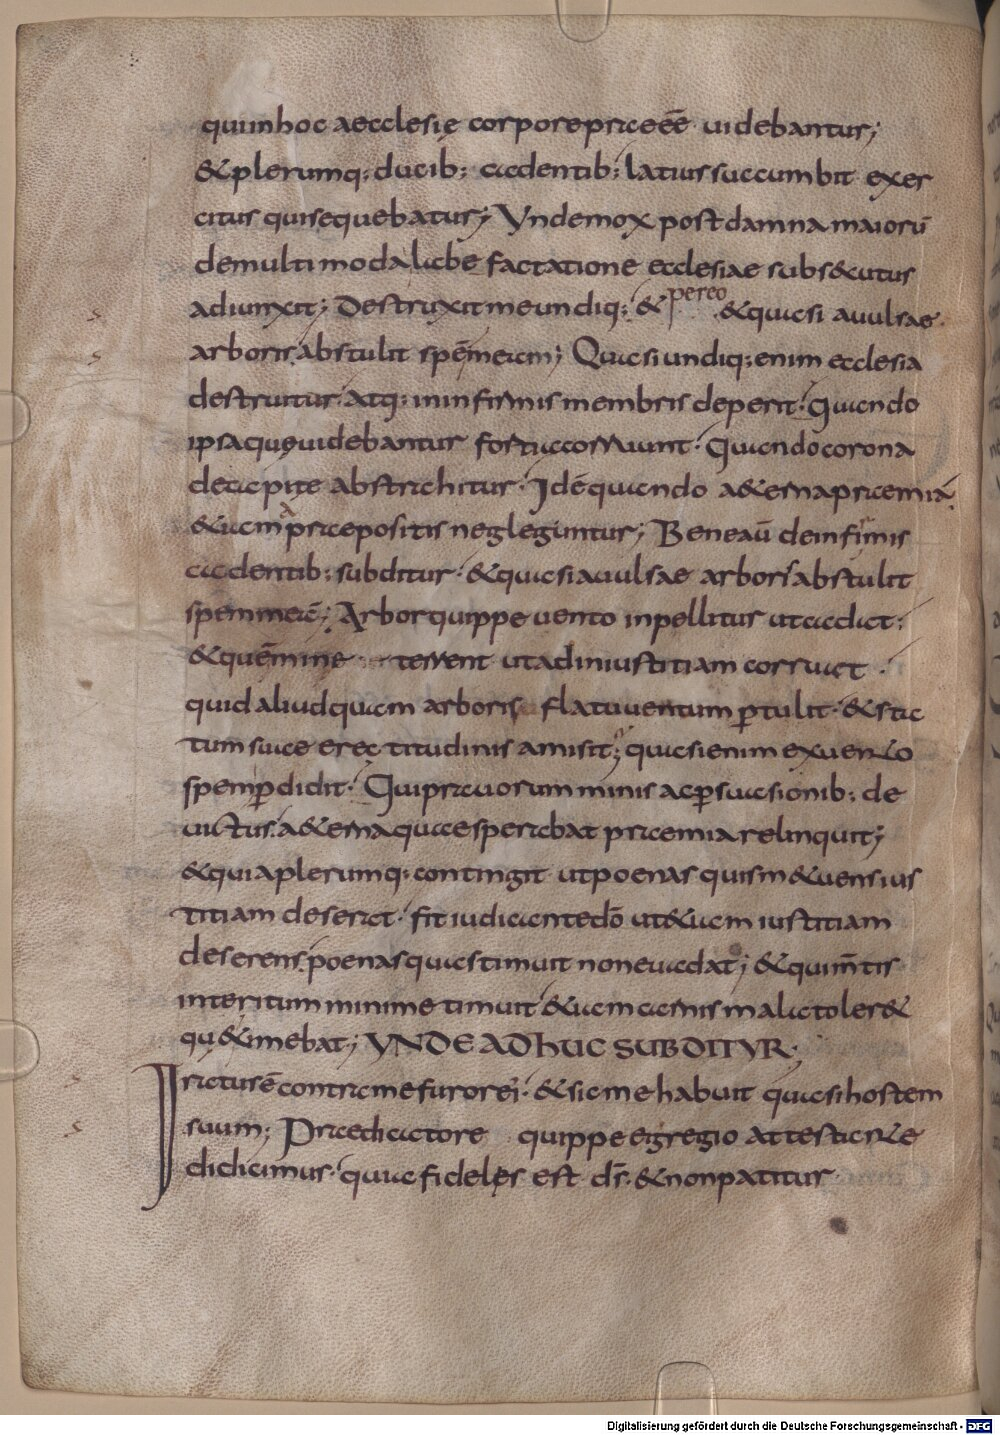 qui in hoc aecclesię corpore praeeē uidebantur;
& plerumq; ducib; cadentib; latius succumbit exer
citus qui sequebatur; Vnde mox post damna maiorū
de multimoda labefactatione ecclesiae subsecutus
adiunxit; Destruxit me undiq; & pereo & quasi auulsae
arboris abstulit spēmeam; Quasi undiq; enim ecclesia
destruitur atq; in infirmis membris deperit. Quando
ipsa quę uidebantur fortia corruunt. Quando corona
de capite abstrahitur. Idē quando a&erna praemia
&iam a praepositis negleguntur; Bene aū de infirmis
cadentib; subditur. & quasi auulsae arbori abstulit
spem meā; Arbor quippe uento inpellitur ut cadat;
& quēmine terrent ut ad iniustitiam corruat.
quid aliud quam arboris flatu uentum ptulit. & sta
tum suae erectitudinis amisit; quasi enim ex uento
spem pdidit. Qui prauorum minis ac psuasionib; de
uictus. a&erna quae sperabat praemia relinquit;
& quia plerumq; contingit ut poenas quis m&uens ius
titiam deserat. fit iudicante dō ut &iam iustitiam
deserens poenas quas timuit non euadat; & qui m̄tis
interitum minime timuit &iam carnis mala toler&
qu& imebat; VNDE ADHUC SUBDITVR;
Iratus ē contra me furor ei. & sic me habuit quasi hostem
suum; Praedicatore quippe egregio attestante
didicimus. quia fideles est ds̄. & non patitur
Digitalisierung gefördert durch die Deutsche Forschungsgemeinschaft - DFG